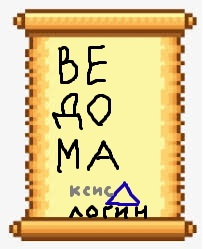 ВЕ
ДО
МА
ксис
логин